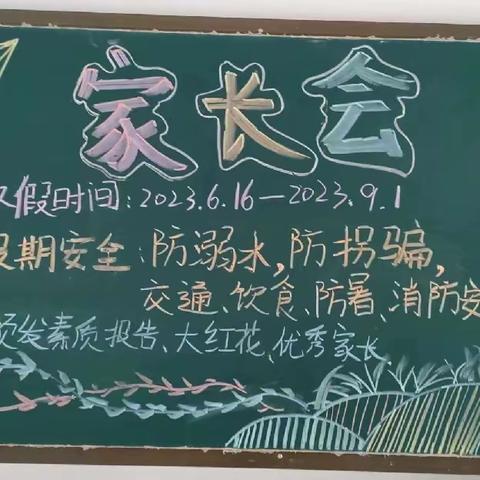 家长会
放假时间:2023.6.16—2023.9.1
假期安全:防溺水,防拐骗,
交通、饮食、防暑、消防安
颁发素质报告、大红花、优秀家长